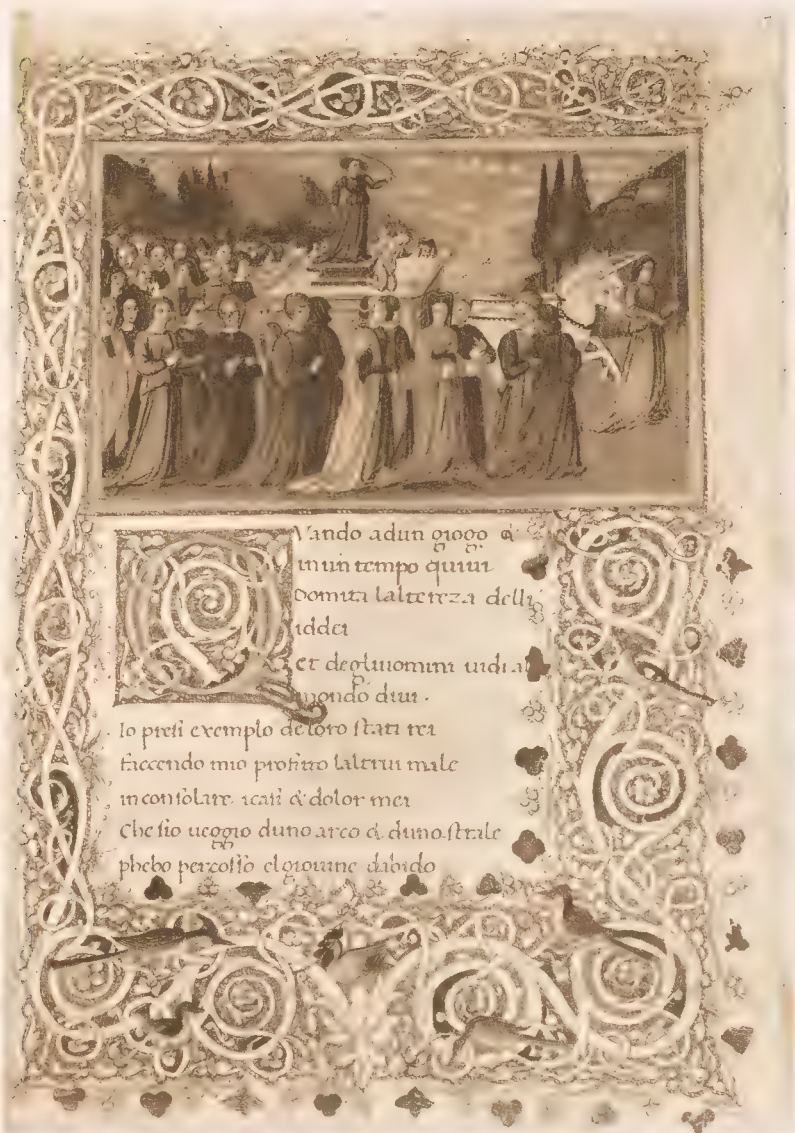 Quando adun giogo &
inun tempo quiui
Domita laltereza delli
iddei
et degliuomini uidi al
mondo diui.
Io presi exemplo deloro stati rei
faccendo mio profitto laltrui male
inconsolare. icasi & dolor mei
Che sio ueggio duno arco & duno strale
phebo percosso elgiouine dabido